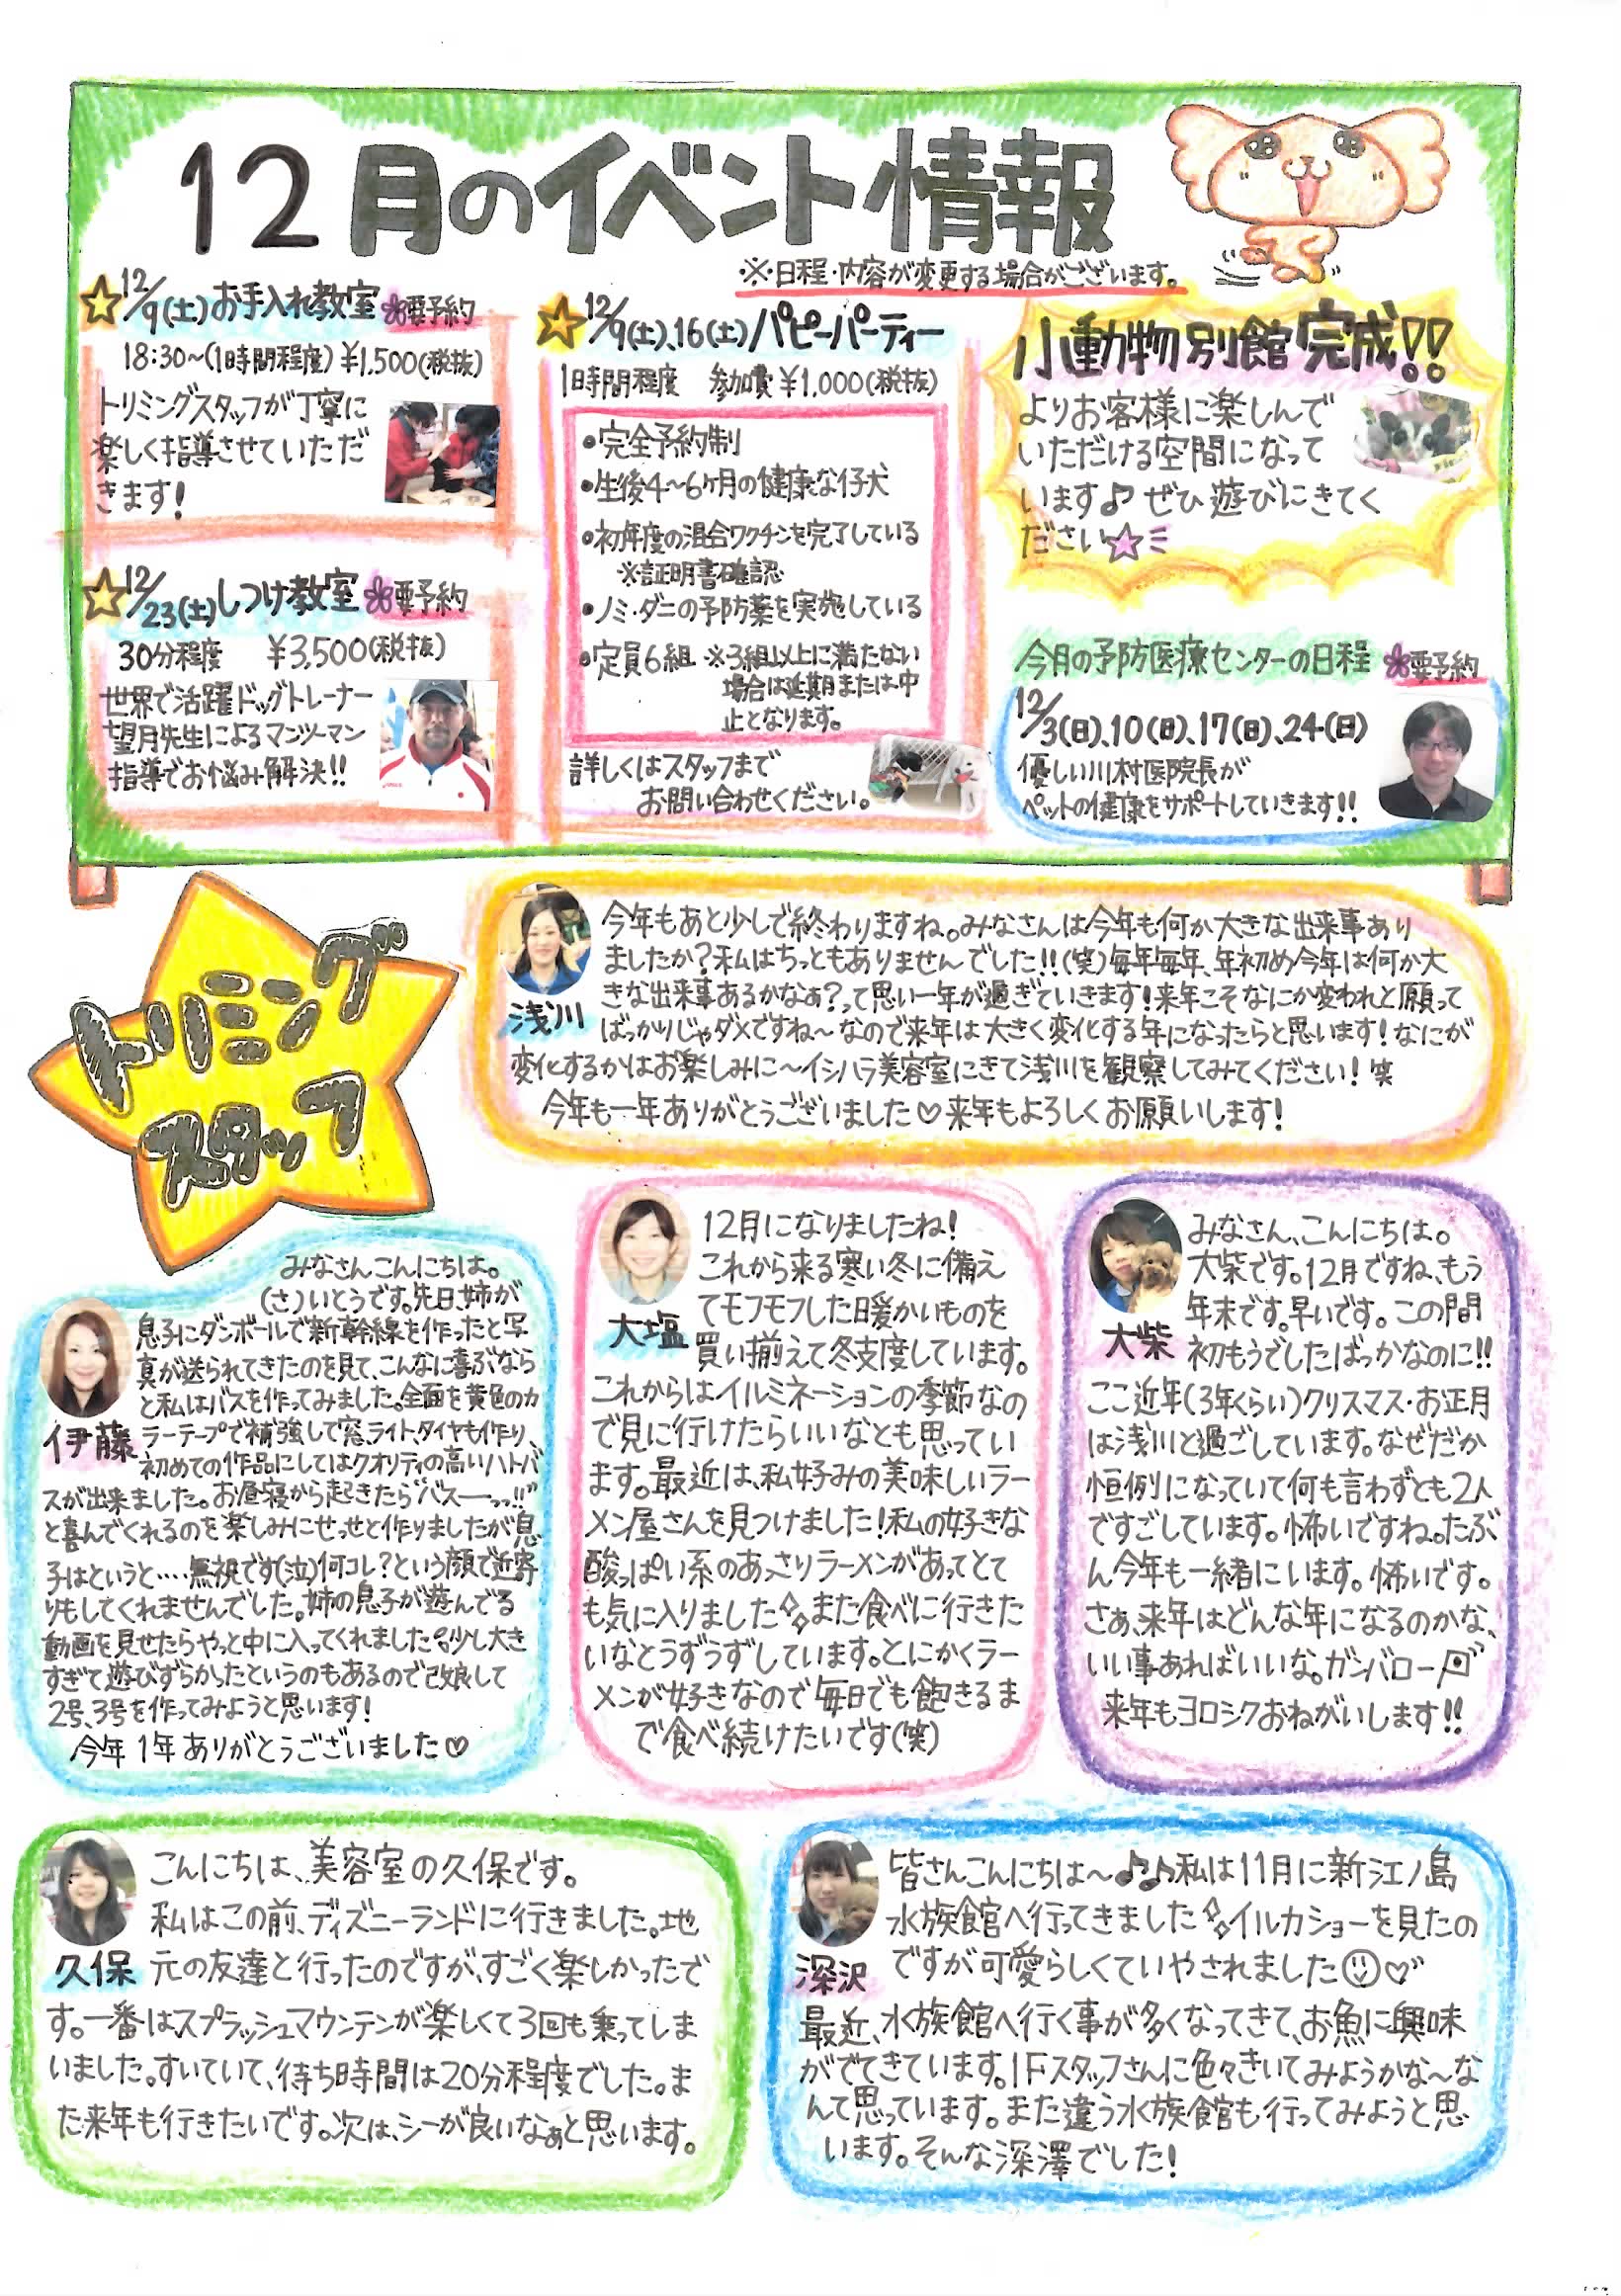 12月のイベント情報
※日程・内容が変更する場合がございます。
☆12/9(土)お手入れ教室 ❀要予約
18:30〜(1時間程度)¥1,500(税抜)
トリミングスタッフが丁寧に
楽しく指導させていただ
きます!
☆12/23(土)しつけ教室 ❀要予約
30分程度 ¥3,500(税抜)
世界で活躍ドッグトレーナー
望月先生によるマンツーマン
指導でお悩み解決!!
☆12/9(土)、16(土)パピーパーティー
1時間程度 参加費¥1,000(税抜)
•完全予約制
•生後4〜6ヶ月の健康な仔犬
•初年度の混合ワクチンを完了している
※証明書確認
•ノミ・ダニの予防薬を実施している
•定員6組 ※3組以上に満たない
場合は延期または中
止となります。
詳しくはスタッフまで
お問い合わせください。
小動物別館完成!!
よりお客様に楽しんで
いただける空間になって
います♪ ぜひ遊びにきてく
ださい☆
今月の予防医療センターの日程 ❀要予約
12/3(日)、10(日)、17(日)、24(日)
優しい川村医院長が
ペットの健康をサポートしていきます!!
トリミング
スタッフ
浅川
今年もあと少しで終わりますね。みなさんは今年も何か大きな出来事あり
ましたか?私はちっともありませんでした!!(笑)毎年毎年、年初め今年は何か大
きな出来事あるかなぁ?って思い一年が過ぎていきます!来年こそなにか変われと願って
ばっかりじゃダメですね〜なので来年は大きく変化する年になったらと思います!なにが
変化するかはお楽しみに〜イシハラ美容室にきて浅川を観察してみてください!笑
今年も一年ありがとうございました♡来年もよろしくお願いします!
伊藤
みなさんこんにちは。
(さ)いとうです。先日、姉が
息子にダンボールで新幹線を作ったと写
真が送られてきたのを見て、こんなに喜ぶなら
と私はバスを作ってみました。全面を黄色のカ
ラーテープで補強して窓、ライト、タイヤも作り、
初めての作品にしてはクオリティの高いハトバ
スが出来ました。お昼寝から起きたら"バスーーっっ!!"
と喜んでくれるのを楽しみにせっせと作りましたが息
子はというと・・・・無視です(泣)何コレ?という顔で近寄
りもしてくれませんでした。姉の息子が遊んでる
動画を見せたらやっと中に入ってくれました。少し大き
すぎて遊びずらかったというのもあるので改良して
2号、3号を作ってみようと思います!
今年1年ありがとうございました♡
大塩
12月になりましたね!
これから来る寒い冬に備え
てモフモフした暖かいものを
買い揃えて冬支度しています。
これからはイルミネーションの季節なの
で見に行けたらいいなとも思ってい
ます。最近は、私好みの美味しいラー
メン屋さんを見つけました!私の好きな
酸っぱい系のあっさりラーメンがあってとて
も気に入りました また食べに行きた
いなとうずうずしています。とにかくラー
メンが好きなので毎日でも飽きるま
で食べ続けたいです(笑)
大柴
みなさん、こんにちは。
大柴です。12月ですね、もう
年末です。早いです。この間
初もうでしたばっかなのに!!
ここ近年(3年くらい)クリスマス・お正月
は浅川と過ごしています。なぜだか
恒例になっていて何も言わずとも2人
ですごしています。怖いですね。たぶ
ん今年も一緒にいます。怖いです。
さぁ、来年はどんな年になるのかな、
いい事あればいいな。ガンバロー
来年もヨロシクおねがいします!!
久保
こんにちは、美容室の久保です。
私はこの前、ディズニーランドに行きました。地
元の友達と行ったのですが、すごく楽しかったで
す。一番はスプラッシュマウンテンが楽しくて3回も乗ってしま
いました。すいていて、待ち時間は20分程度でした。ま
た来年も行きたいです。次は、シーが良いなぁと思います。
深沢
皆さんこんにちは〜♪♪私は11月に新江ノ島
水族館へ行ってきました イルカショーを見たの
ですが可愛らしくていやされました☺♡
最近、水族館へ行く事が多くなってきて、お魚に興味
がでてきています。1Fスタッフさんに色々きいてみようかな〜な
んて思っています。また違う水族館も行ってみようと思
います。そんな深澤でした!